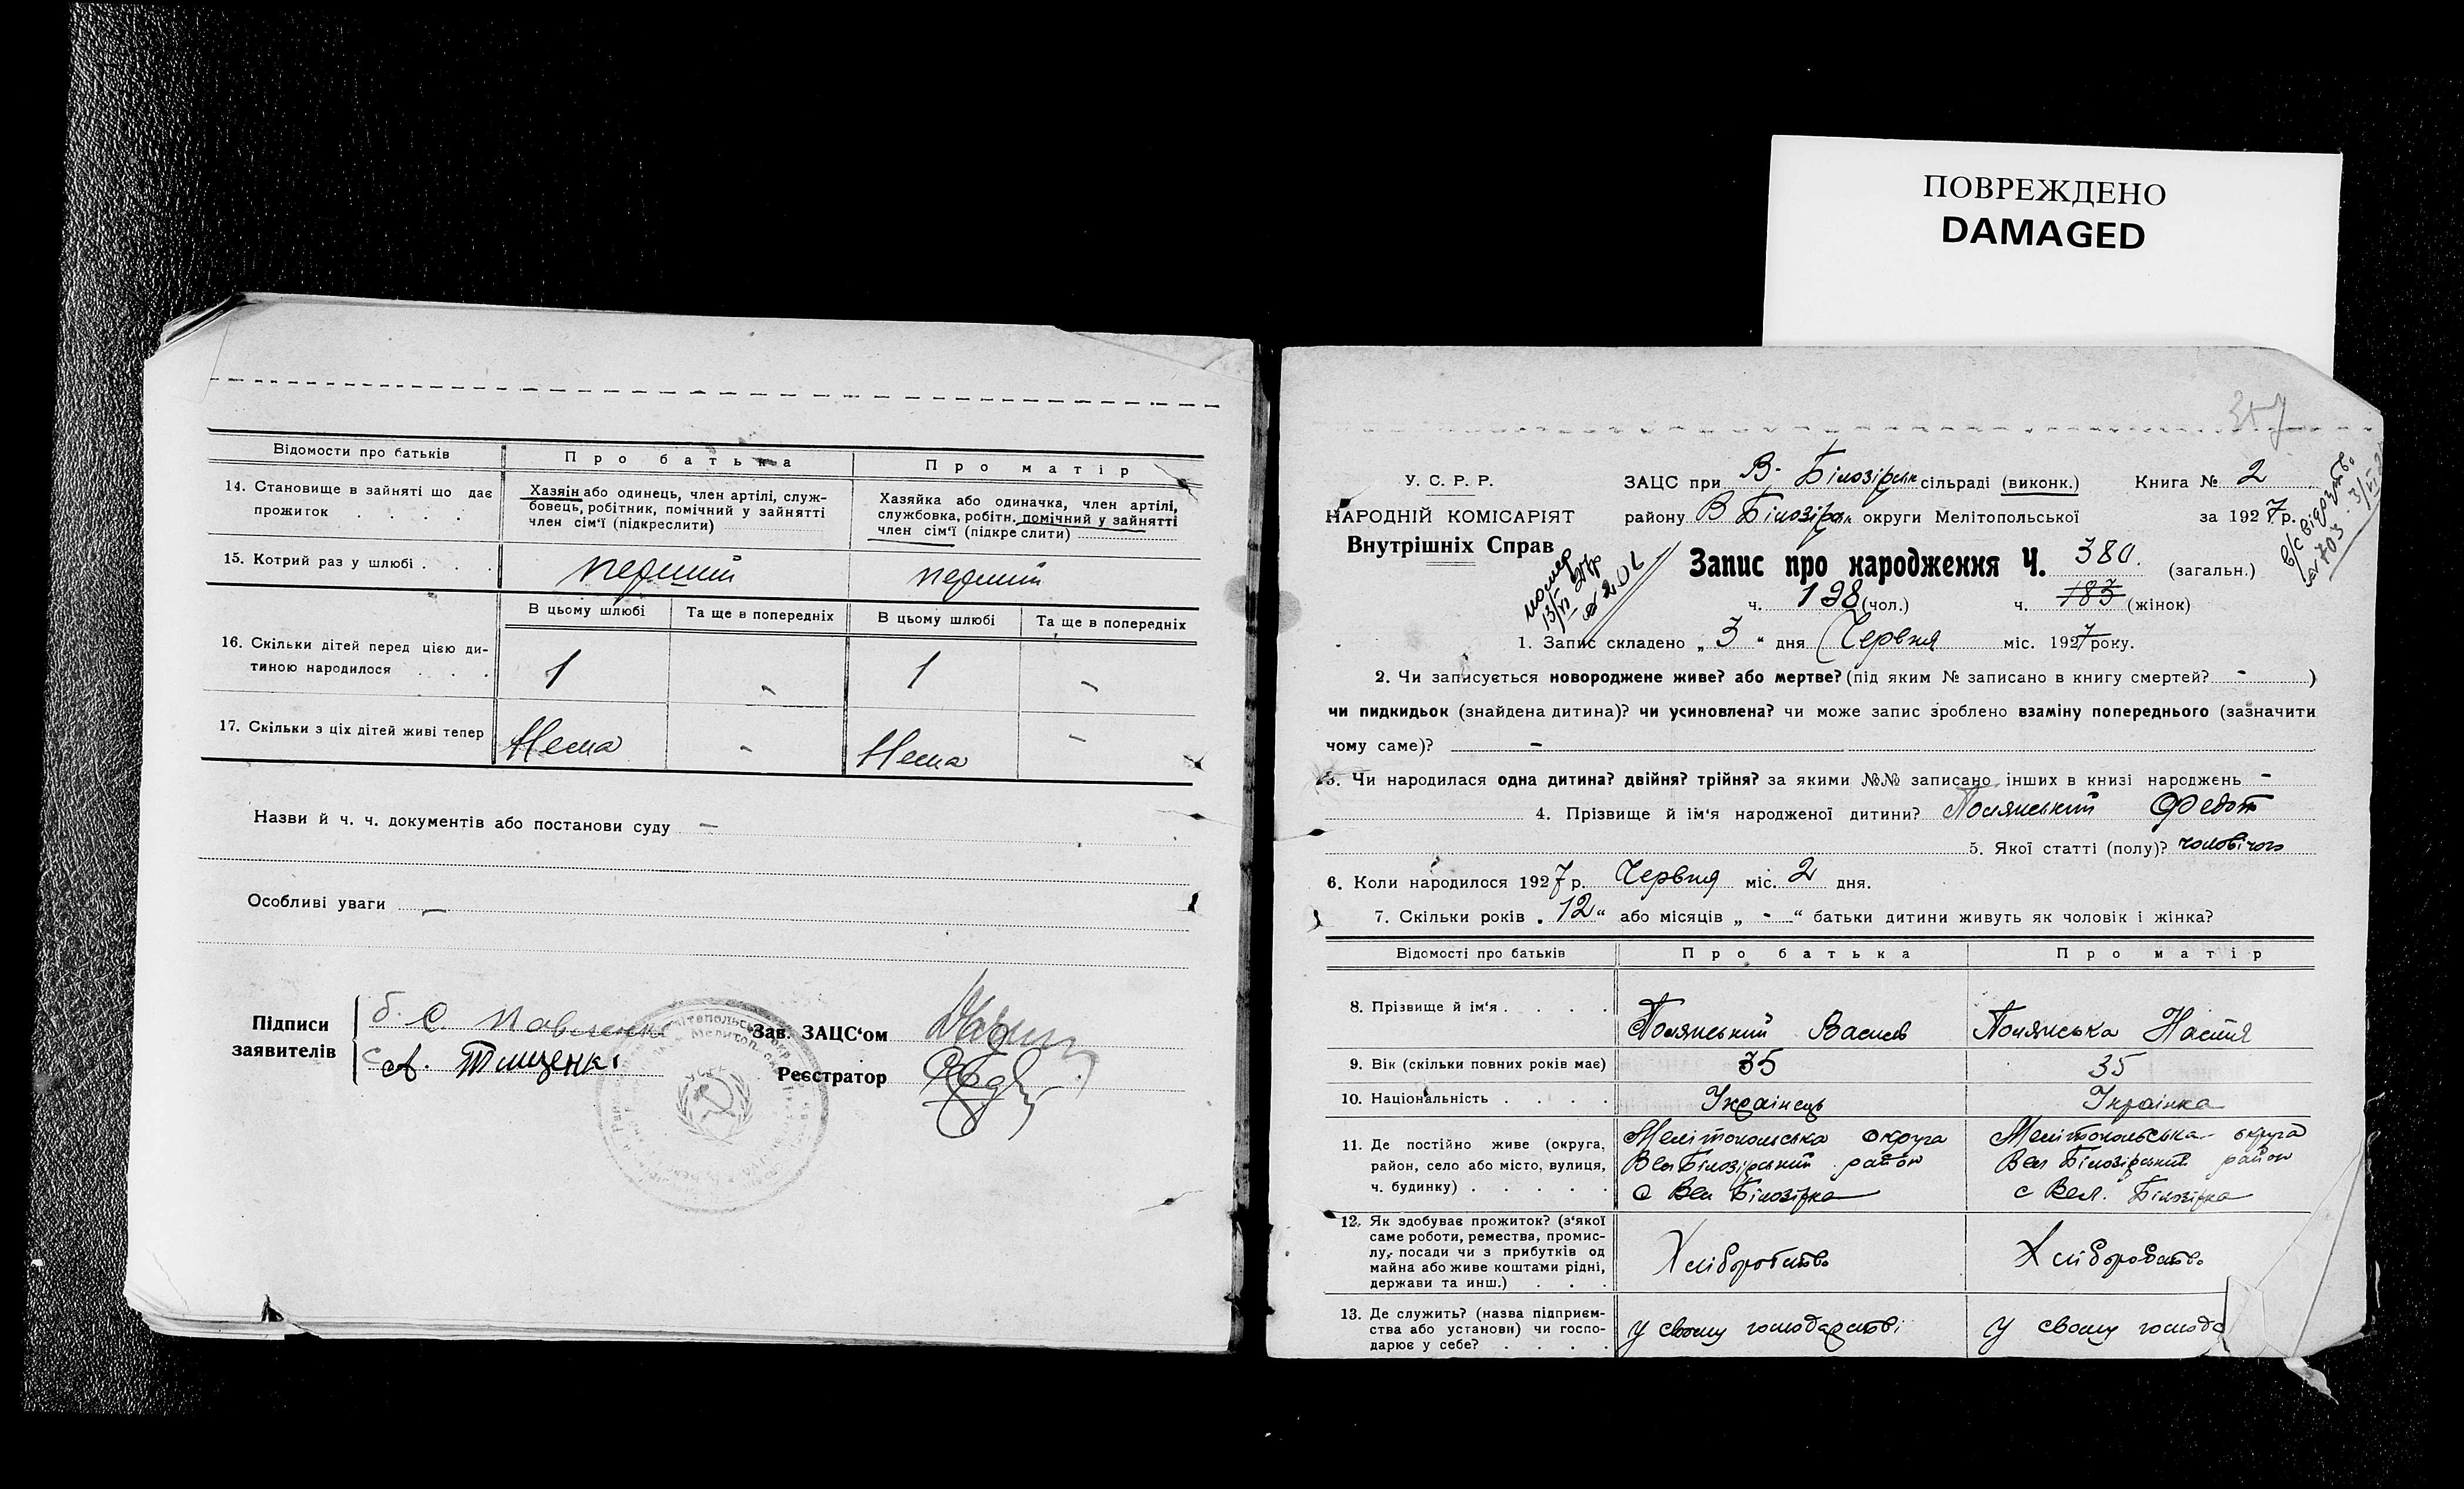 ПОВРЕЖДЕНО
DAMAGED
Відомости про батьків
Про батька
Про матір
14. Становище в зайняті що дає
прожиток . . . .
Хазяїн або одинець, член артілі, служ-
бовець, робітник, помічний у зайнятті
член сім'ї (підкреслити)
Хазяйка або одиначка, член артілі,
службовка, робітн. помічний у зайнятті
член сім'ї (підкреслити)
15. Котрий раз у шлюбі . . .
перший
перший
В цьому шлюбі
Та ще в попередніх
В цьому шлюбі
Та ще в попередніх
16. Скільки дітей перед цією ди-
тиною народилося . . .
1 - 1 -
17. Скільки з ціх дітей живі тепер
Нема - Нема -
Назви й ч. ч. документів або постанови суду —
Особливі уваги —
Підписи
заявителів
б. С.
А. Тищенкі
Зав. ЗАЦС'ом
Реєстратор
357
У. С. Р. Р.
НАРОДНІЙ КОМІСАРІЯТ
Внутрішніх Справ
ЗАЦС при В. Білозірк сільраді (виконк.)
Книга № 2
району В Білозірк округи Мелітопольської
за 1927 р.
в/с відпуств.
за 703. 3/VI
Запис про народження Ч. 380. (загальн.)
помер
13/VI 27р
№ 202
ч. 198 (чол.)
ч. 183 (жінок)
1. Запис складено „ 3 " дня Червня міс. 1927 року.
2. Чи записується новороджене живе? або мертве? (під яким № записано в книгу смертей? - )
чи пидкидьок (знайдена дитина)? чи усиновлена? чи може запис зроблено взаміну попереднього (зазначити
чому саме)? -
3. Чи народилася одна дитина? двійня? трійня? за якими №№ записано інших в книзі народжень -
4. Прізвище й ім'я народженої дитини? Полянський Федот
5. Якої статті (полу)? чоловічого
6. Коли народилося 1927 р. Червня міс. 2 дня.
7. Скільки років „ 12 " або місяців „ - " батьки дитини живуть як чоловік і жінка?
Відомості про батьків
Про батька
Про матір
8. Прізвище й ім'я . . . .
Полянський Василь
Полянська Настя
9. Вік (скільки повних років має)
35
35
10. Національність . . . .
Українець
Українка
11. Де постійно живе (округа,
район, село або місто, вулиця,
ч. будинку) . . . . .
Мелітопольська округа
Вел Білозірський район
с Вел Білозірка
Мелітопольська округа
Вел Білозірський район
с Вел. Білозірка
12. Як здобуває прожиток? (з'якої
саме роботи, ремества, промис-
лу, посади чи з прибутків од
майна або живе коштами рідні,
держави та инш.) . . .
Хліборобство
Хліборобство
13. Де служить? (назва підприєм-
ства або установи) чи госпо-
дарює у себе? . . . .
у своєму господарстві
у своєму господа